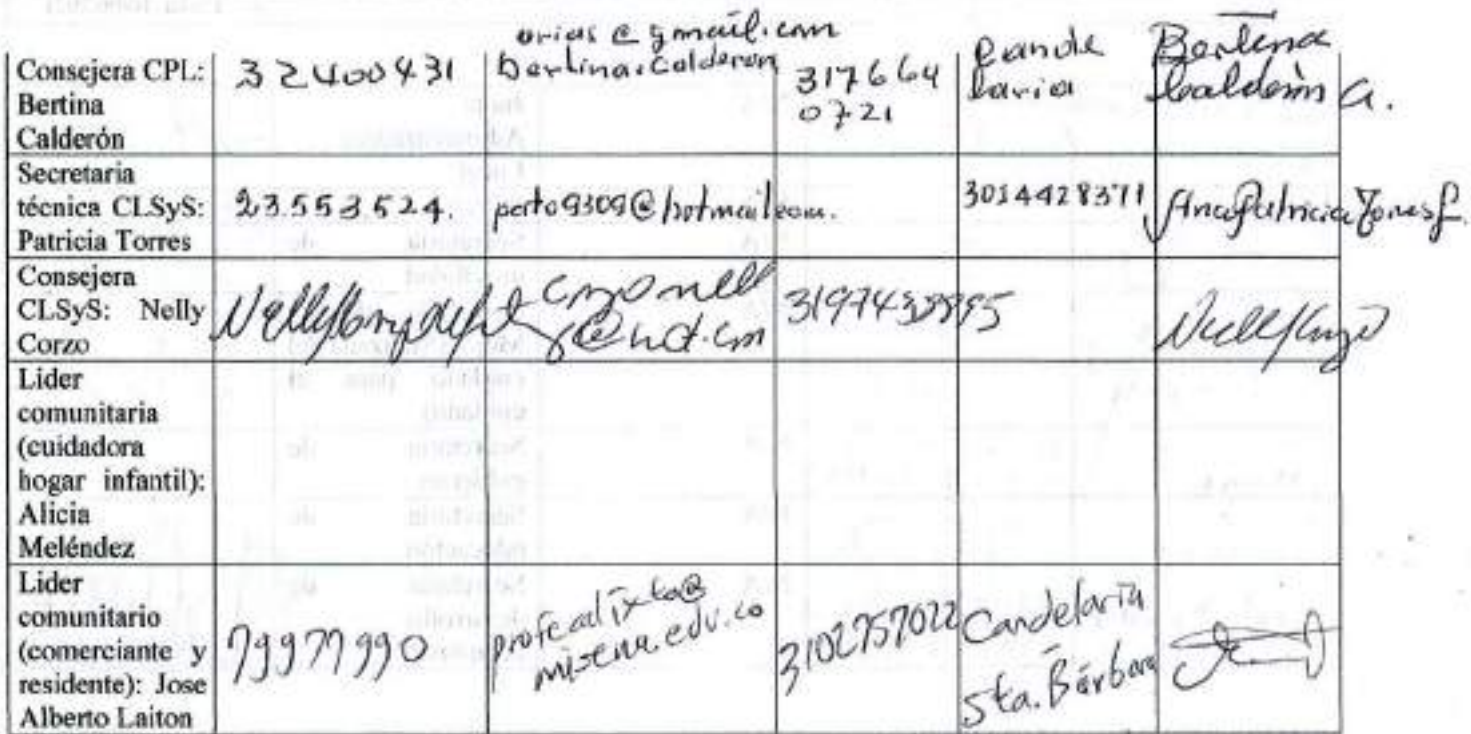 arias@gmail.com
Consejera CPL:
Bertina
Calderón
32400431
bertina.calderon
317664
0721
Cande
laria
Bertina
Calderón A.
Secretaria
técnica CLSyS:
Patricia Torres
23.553.524.
pato9309@hotmail.com.
3014428371
Ana Patricia Torres
Consejera
CLSyS: Nelly
Corzo
Nelly Corzo
Nelly Corzo
Lider
comunitaria
(cuidadora
hogar infantil):
Alicia
Meléndez
Lider
comunitario
(comerciante y
residente): Jose
Alberto Laiton
79977990
profecalixto@
misena.edu.co
3102757022
Candelaria
Sta. Bárbara